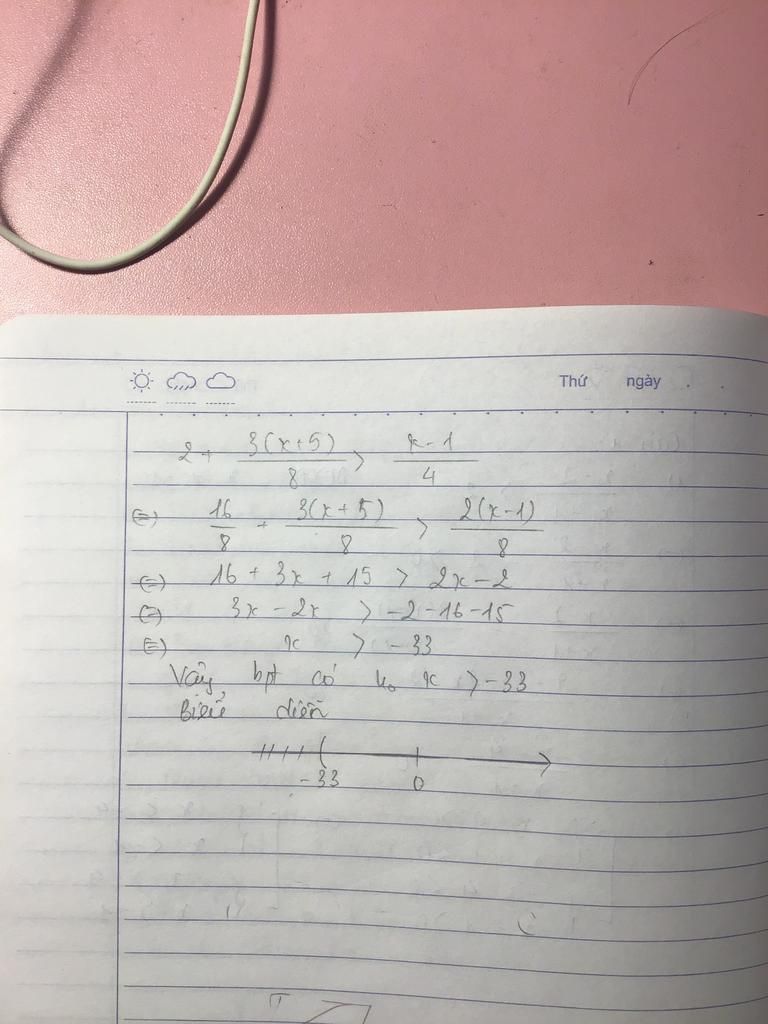 Thứ ngày . .
2 + 3(x+5)/8 > x-1/4
(=) 16/8 + 3(x+5)/8 > 2(x-1)/8
(=) 16 + 3x + 15 > 2x - 2
(=) 3x - 2x > -2 - 16 - 15
(=) x > -33
Vậy bpt có no x > -33
Biểu diễn
-33 0